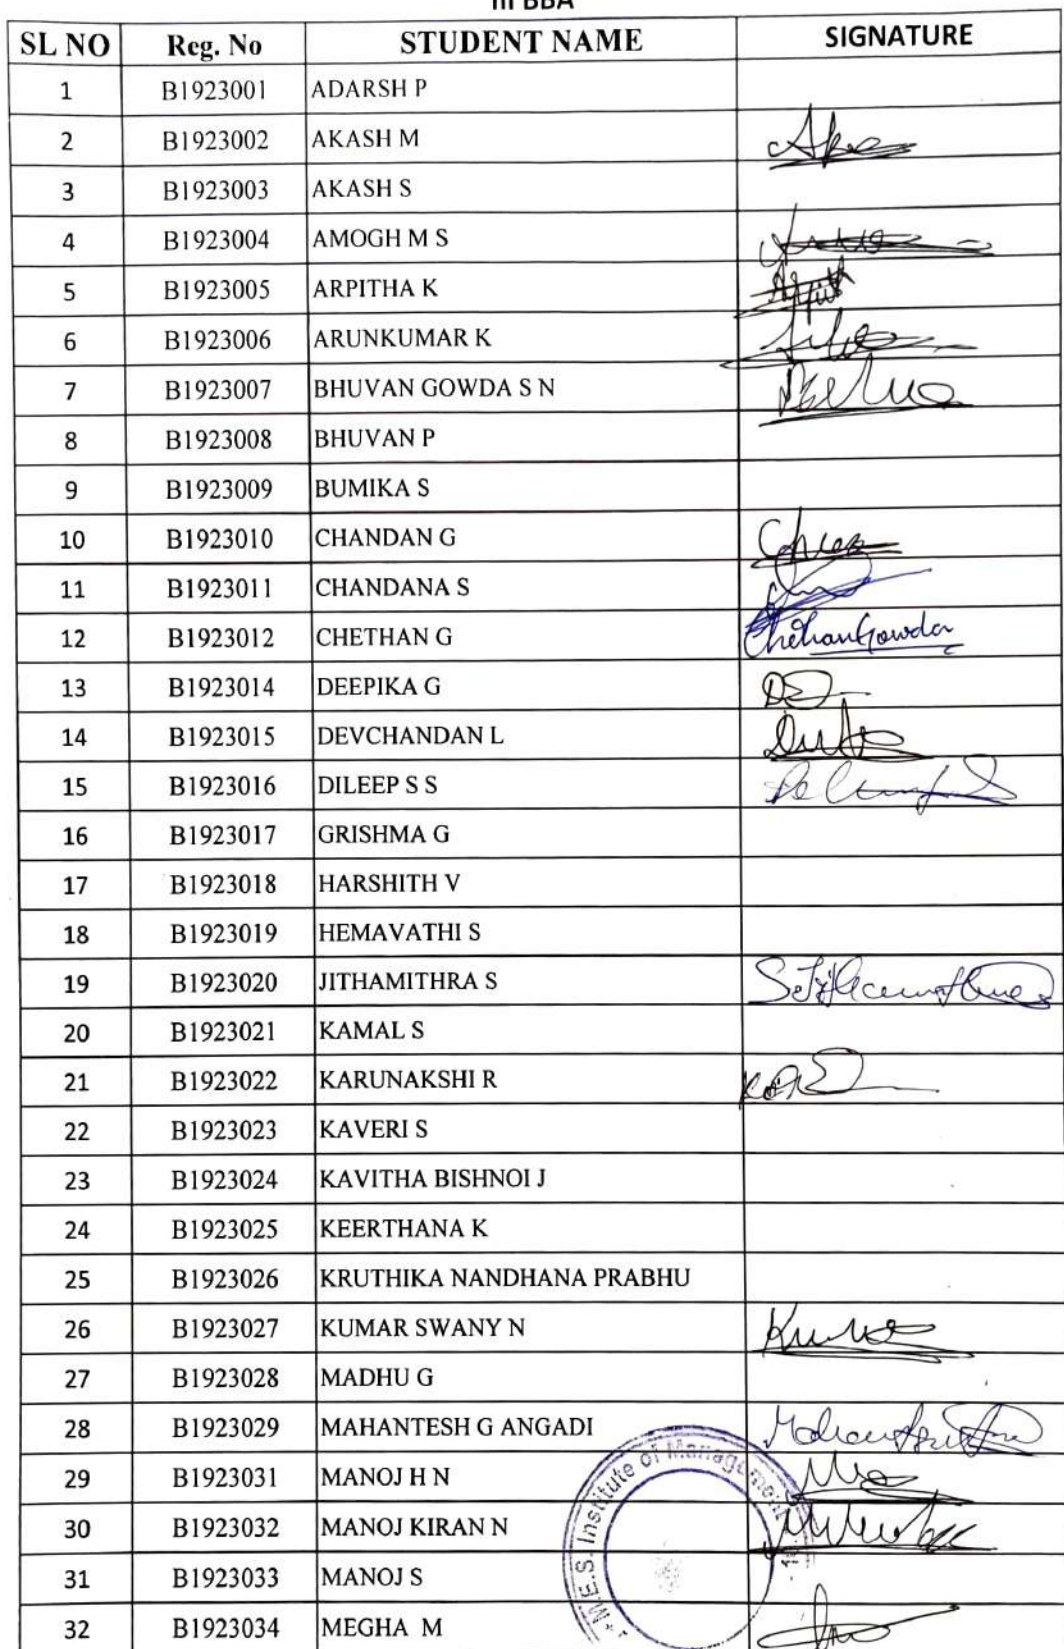 III BBA
SL NO Reg. No STUDENT NAME SIGNATURE
1 B1923001 ADARSH P
2 B1923002 AKASH M
3 B1923003 AKASH S
4 B1923004 AMOGH M S
5 B1923005 ARPITHA K
6 B1923006 ARUNKUMAR K
7 B1923007 BHUVAN GOWDA S N
8 B1923008 BHUVAN P
9 B1923009 BUMIKA S
10 B1923010 CHANDAN G
11 B1923011 CHANDANA S
12 B1923012 CHETHAN G Chethan Gowda
13 B1923014 DEEPIKA G
14 B1923015 DEVCHANDAN L
15 B1923016 DILEEP S S
16 B1923017 GRISHMA G
17 B1923018 HARSHITH V
18 B1923019 HEMAVATHI S
19 B1923020 JITHAMITHRA S
20 B1923021 KAMAL S
21 B1923022 KARUNAKSHI R
22 B1923023 KAVERI S
23 B1923024 KAVITHA BISHNOI J
24 B1923025 KEERTHANA K
25 B1923026 KRUTHIKA NANDHANA PRABHU
26 B1923027 KUMAR SWANY N
27 B1923028 MADHU G
28 B1923029 MAHANTESH G ANGADI
29 B1923031 MANOJ H N
30 B1923032 MANOJ KIRAN N
31 B1923033 MANOJ S
32 B1923034 MEGHA M
M.E.S. Institute of Management